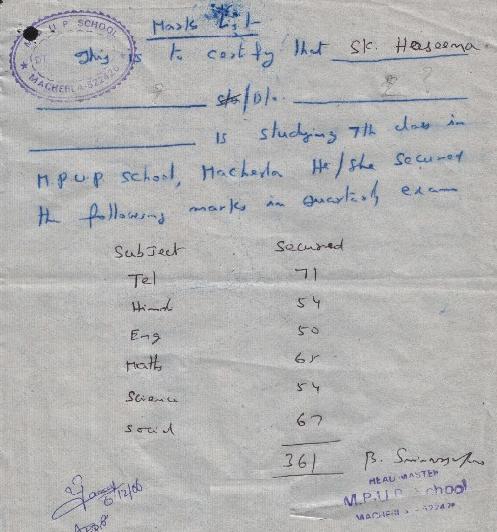 M. P. U. P. SCHOOL
MACHERLA-522426
Mark List
This is to costfy that SK. Haseema.
S/o / D/o.
is studying 7th class in
M.P.U.P School, Macherla He/She secured
the following marks in quarterly exam
Subject Secured
Tel 71
Hind 54
Eng 50
Maths 65
Science 54
Social 67
361
HEAD MASTER
M.P.U.P. School
MACHERLA-522426
6/12/06